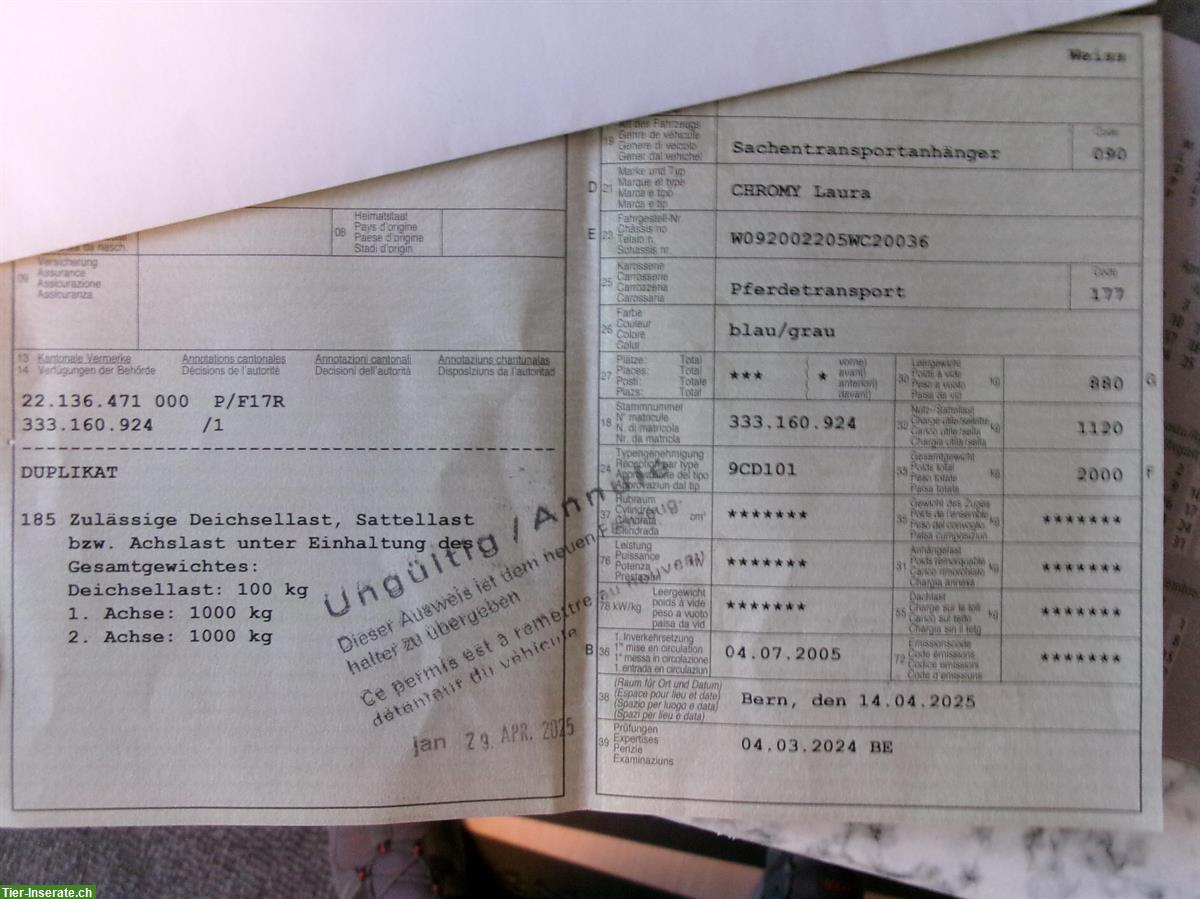 Weiss
08
Heimatstaat
Pays d'origine
Paese d'origine
Stadi d'origin
09
Versicherung
Assurance
Assicurazione
Assicuranza
13 Kantonale Vermerke Annotations cantonales Annotazioni cantonali Annotaziuns chantunalas
14 Verfügungen der Behörde Décisions de l'autorité Decisioni dell'autorità Disposiziuns da l'autoritad
22.136.471 000 P/F17R
333.160.924 /1
DUPLIKAT
185 Zulässige Deichsellast, Sattellast
bzw. Achslast unter Einhaltung des
Gesamtgewichtes:
Deichsellast: 100 kg
1. Achse: 1000 kg
2. Achse: 1000 kg
Ungültig / Annulé
Dieser Ausweis ist dem neuen
halter zu übergeben
Ce permis est à remettre au nouveau
détenteur du véhicule
jan 29. APR. 2025
19
Art des Fahrzeugs
Genre de véhicule
Genere di veicolo
Gener dal vehichel
Sachentransportanhänger
Code
090
D 21
Marke und Typ
Marque et type
Marca e tipo
Marca e tip
CHROMY Laura
E 23
Fahrgestell-Nr.
Châssis no
Telaio n.
Schassis nr.
W092002205WC20036
25
Karosserie
Carrosserie
Carrozzeria
Carossaria
Pferdetransport
Code
177
26
Farbe
Couleur
Colore
Colur
blau/grau
27
Plätze: Total
Places: Total
Posti: Totale
Plazs: Total
***
( vorne)
( avant)
anteriori)
davant)
*
30
Leergewicht
Poids à vide
Peso a vuoto
Paisa da vid
kg
880
G
18
Stammnummer
N° matricule
N. di matricola
Nr. da matricla
333.160.924
32
Nutz-/Sattellast
Charge utile/sellette
Carico utile/sella
Chargia utila/sella
kg
1120
24
Typengenehmigung
Réception par type
Approvazione del tipo
Approvaziun dal tip
9CD101
33
Gesamtgewicht
Poids total
Peso totale
Paisa totala
kg
2000
F
37
Hubraum
Cylindrée
Cilindrata
Cilindrada
cm³
*******
35
Gewicht des Zuges
Poids de l'ensemble
Peso del convoglio
Paisa cumposiziun
kg
*******
76
Leistung
Puissance
Potenza
Prestaziun
kW
*******
31
Anhängelast
Poids remorquable
Carico rimorchiato
Chargia annexa
kg
*******
78 kW/kg
Leergewicht
poids à vide
peso a vuoto
paisa da vid
*******
55
Dachlast
Charge sur le toit
Carico sul tetto
Chargia sin il tetg
kg
*******
B 36
1. Inverkehrsetzung
1re mise en circulation
1a messa in circolazione
1. entrada en circulaziun
04.07.2005
72
Emissionscode
Code émissions
Codice emissioni
Code d'emissiuns
*******
38
(Raum für Ort und Datum)
(Espace pour lieu et date)
(Spazio per luogo e data)
(Spazi per lieu e data)
Bern, den 14.04.2025
39
Prüfungen
Expertises
Perizie
Examinaziuns
04.03.2024 BE
Tier-Inserate.ch